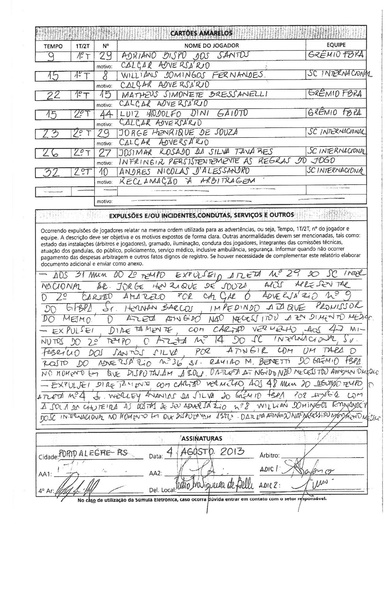 CARTÕES AMARELOS
TEMPO 1T/2T Nº NOME DO JOGADOR EQUIPE
9 1ºT 29 ADRIANO BISPO DOS SANTOS GRÊMIO FBPA
motivo: CALÇAR ADVERSÁRIO
15 1ºT 8 WILLIANS DOMINGOS FERNANDES. SC INTERNACIONAL
motivo: CALÇAR ADVERSÁRIO
22 1ºT 15 MATHEUS SIMONETE BRESSANELLI GRÊMIO FBPA
motivo: CALÇAR ADVERSÁRIO
15 2ºT 44 LUIZ RODOLFO DINI GAIOTO GRÊMIO FBPA
motivo: CALÇAR ADVERSÁRIO
23 2ºT 29 JORGE HENRIQUE DE SOUZA SC INTERNACIONAL
motivo: CALÇAR ADVERSÁRIO
26 2ºT 27 JOSIMAR ROSADO DA SILVA TAVARES SC INTERNACIONAL
motivo: INFRINGIR PERSISTENTEMENTE AS REGRAS DO JOGO
32 2ºT 10 ANDRES NICOLAS D'ALESSANDRO SC INTERNACIONAL
motivo: RECLAMAÇÃO A ARBITRAGEM
EXPULSÕES E/OU INCIDENTES, CONDUTAS, SERVIÇOS E OUTROS
Ocorrendo expulsões de jogadores relatar na mesma ordem utilizada para as advertências, ou seja, Tempo, 1T/2T, nº do jogador e
equipe. A descrição deve ser objetiva e os motivos expostos de forma clara. Outras anormalidades devem ser mencionadas, tais como:
estado das instalações (árbitros e jogadores), gramado, iluminação, conduta dos jogadores, integrantes das comissões técnicas,
atuação dos gandulas, do público, policiamento, serviço médico, inclusive ambulância, segurança. Informar quando não ocorrer
pagamento das despesas arbitragem e outros fatos dignos de registro. Se houver necessidade de complementar este relatório elaborar
documento adicional e enviar como anexo.
- AOS 31 MIN DO 2º TEMPO EXPULSEI ATLETA Nº 29 DO SC INTER
NACIONAL SR JORGE HENRIQUE DE SOUZA APÓS APRESENTAR
O 2º CARTÃO AMARELO POR CALÇAR O ADVERSÁRIO Nº 9
DO GFBPA SR HERNAN BARCOS IMPEDINDO ATAQUE PROMISSOR
DO MESMO O ATLETA ATINGIDO NÃO NECESSITOU ATENDIMENTO MÉDICO
- EXPULSEI DIRETAMENTE COM CARTÃO VERMELHO AOS 47 MI-
NUTOS DO 2º TEMPO O ATLETA Nº 14 DO SC INTERNACIONAL SR.
FABRÍCIO DOS SANTOS SILVA POR ATINGIR COM UM TAPA O
ROSTO DO ADVERSÁRIO Nº 36 SR. RAMIRO M. BENETTI DO GRÊMIO FBPA
NO MOMENTO EM QUE DISPUTAVAM A BOLA. O ATLETA ATINGIDO NÃO NECESSITOU
- EXPULSEI DIRETAMENTE COM CARTÃO VERMELHO AOS 48 MIN DO SEGUNDO TEMPO
ATLETA Nº WERLEY ANANIAS DA SILVA DO GRÊMIO FBPA POR ATINGIR COM
A SOLA DA CHUTEIRA AS COSTAS DE SEU ADVERSÁRIO Nº 8 WILLIAN DOMINGOS
DO SC INTERNACIONAL NO MOMENTO EM QUE DISPUTAVAM
ASSINATURAS
Cidade PORTO ALEGRE - RS Data 4 AGOSTO 2013 Árbitro:
AA1: AA2: ADIC1
4º Ar: Del. Local: ADIC2:
No caso de utilização da Súmula Eletrônica, caso ocorra dúvida entrar em contato com o setor responsável.